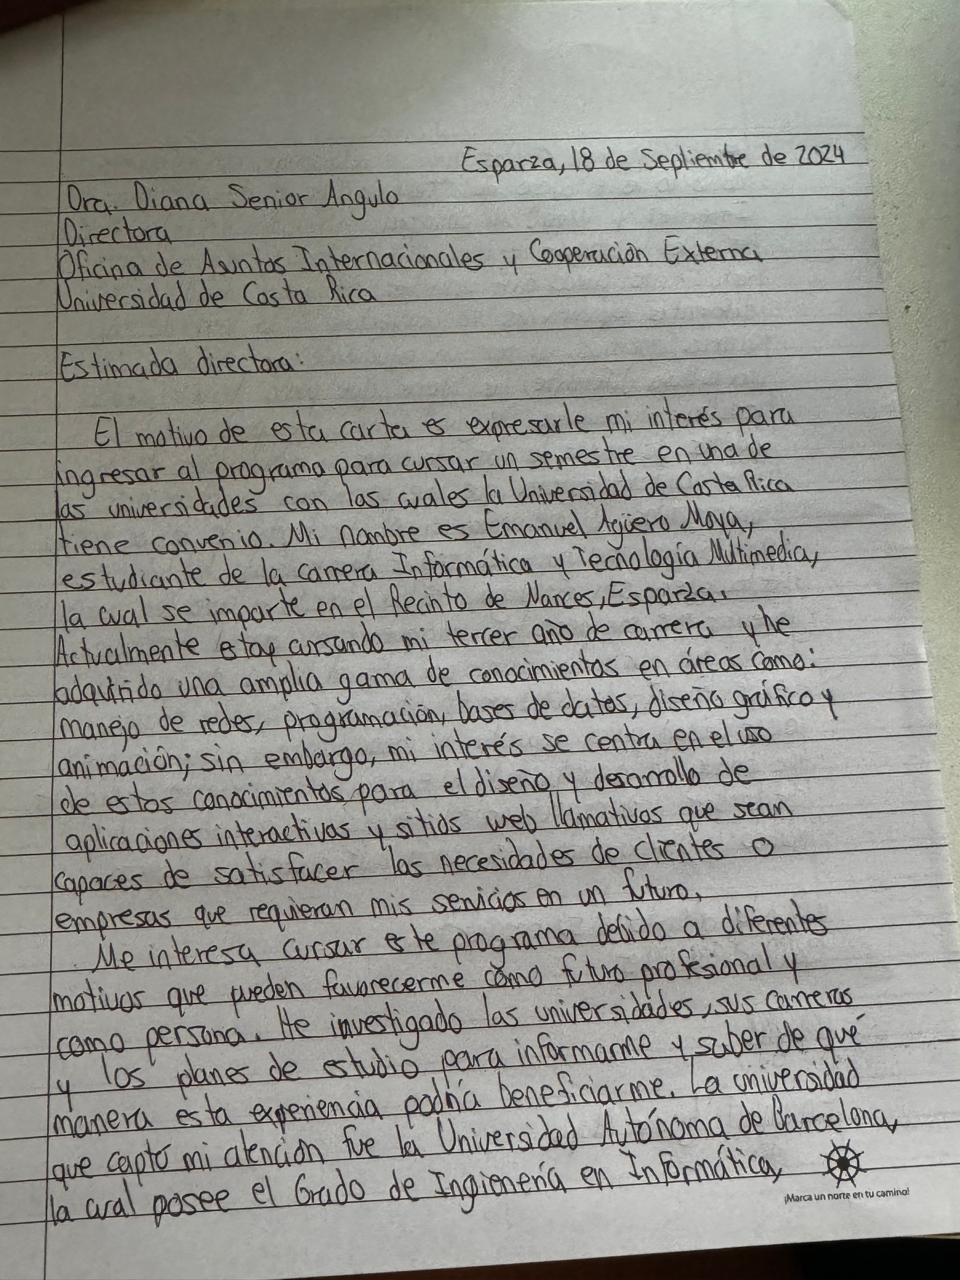 Esparza, 18 de Septiembre de 2024
Dra. Diana Senior Angulo
Directora
Oficina de Asuntos Internacionales y Cooperación Externa
Universidad de Costa Rica
Estimada directora:
El motivo de esta carta es expresarle mi interés para
ingresar al programa para cursar un semestre en una de
las universidades con las cuales la Universidad de Costa Rica
tiene convenio. Mi nombre es Emanuel Agüero Moya,
estudiante de la carrera Informática y Tecnología Multimedia,
la cual se imparte en el Recinto de Nances, Esparza.
Actualmente estoy cursando mi tercer año de carrera y he
adquirido una amplia gama de conocimientos en áreas como:
manejo de redes, programación, bases de datos, diseño gráfico y
animación; sin embargo, mi interés se centra en el uso
de estos conocimientos para el diseño y desarrollo de
aplicaciones interactivas y sitios web llamativos que sean
capaces de satisfacer las necesidades de clientes o
empresas que requieran mis servicios en un futuro.
Me interesa cursar este programa debido a diferentes
motivos que pueden favorecerme como futuro profesional y
como persona. He investigado las universidades, sus carreras
y los planes de estudio para informarme y saber de qué
manera esta experiencia podría beneficiarme. La universidad
que captó mi atención fue la Universidad Autónoma de Barcelona,
la cual posee el Grado de Ingienería en Informática,
¡Marca un norte en tu camino!